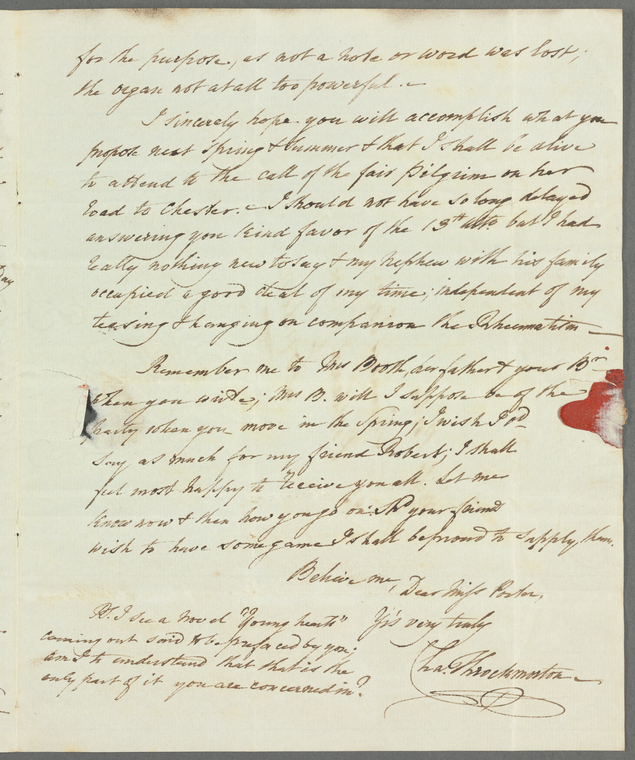 for the purpose, as not a note or word was lost;
the organ not at all too powerful.
I sincerely hope you will accomplish what you
propose next Spring & Summer & that I shall be alive
to attend to the call of the fair Pilgrim on her
road to Chester. I should not have so long delayed
answering you kind favor of the 13th ulto but I had
really nothing new to say & my nephew with his family
occupied a good deal of my time; independent of my
teasing & hanging on companion the Rheumatism
Remember me to Mrs Booth, her father & your Br
when you write; Mrs B. will I suppose be of the
party when you move in the Spring; I wish I cd
say as much for my friend Robert; I shall
feel most happy to receive you all. Let me
know now & then how you go on. If your friend
wish to have some game I shall be proud to supply them.
Believe me, Dear Miss Porter,
Yrs very truly
Chas. Throckmorton
Ps. I see a Novel "Young hearts"
coming out said to be prefaced by you;
am I to understand that that is the
only part of it you are concerned in?
Day